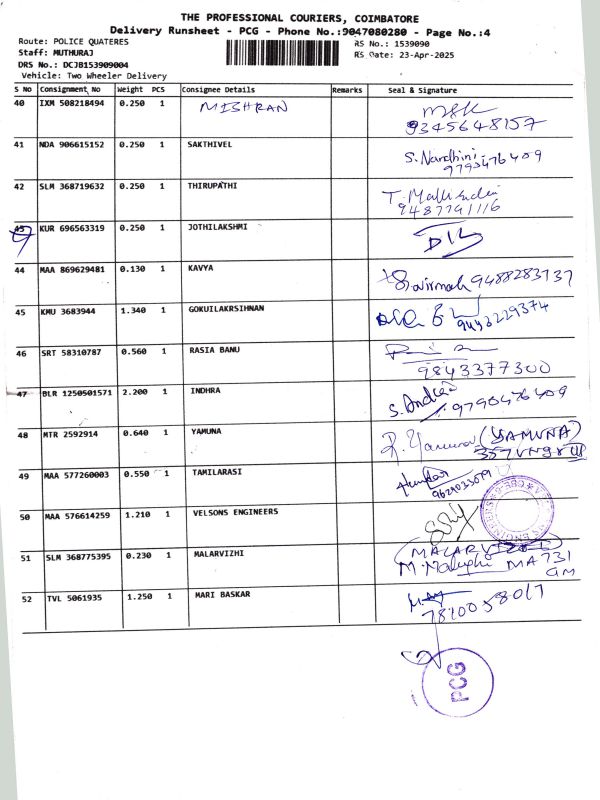 THE PROFESSIONAL COURIERS, COIMBATORE
Delivery Runsheet - PCG - Phone No.:9047080280 - Page No.:4
Route: POLICE QUATERES
RS No.: 1539090
Staff: MUTHURAJ
RS Date: 23-Apr-2025
DRS No.: DCJB153909004
Vehicle: Two Wheeler Delivery
S No Consignment No Weight PCS Consignee Details Remarks Seal & Signature
40 IXM 508218494 0.250 1 MISHRAN
9345648157
41 NDA 906615152 0.250 1 SAKTHIVEL S. Nandhini
9790476409
42 SLM 368719632 0.250 1 THIRUPATHI
9487791116
43 KUR 696563319 0.250 1 JOTHILAKSHMI
44 MAA 869629481 0.130 1 KAVYA 9488283737
45 KMU 3683944 1.340 1 GOKUILAKRSIHNAN
46 SRT 58310787 0.560 1 RASIA BANU
9843377300
47 BLR 1250501571 2.200 1 INDHRA
9790476409
48 MTR 2592914 0.640 1 YAMUNA R. Yamuna (YAMUNA)
49 MAA 577260003 0.550 1 TAMILARASI
50 MAA 576614259 1.210 1 VELSONS ENGINEERS
51 SLM 368775395 0.230 1 MALARVIZHI
MA 731
52 TVL 5061935 1.250 1 MARI BASKAR
7810058017
PCG